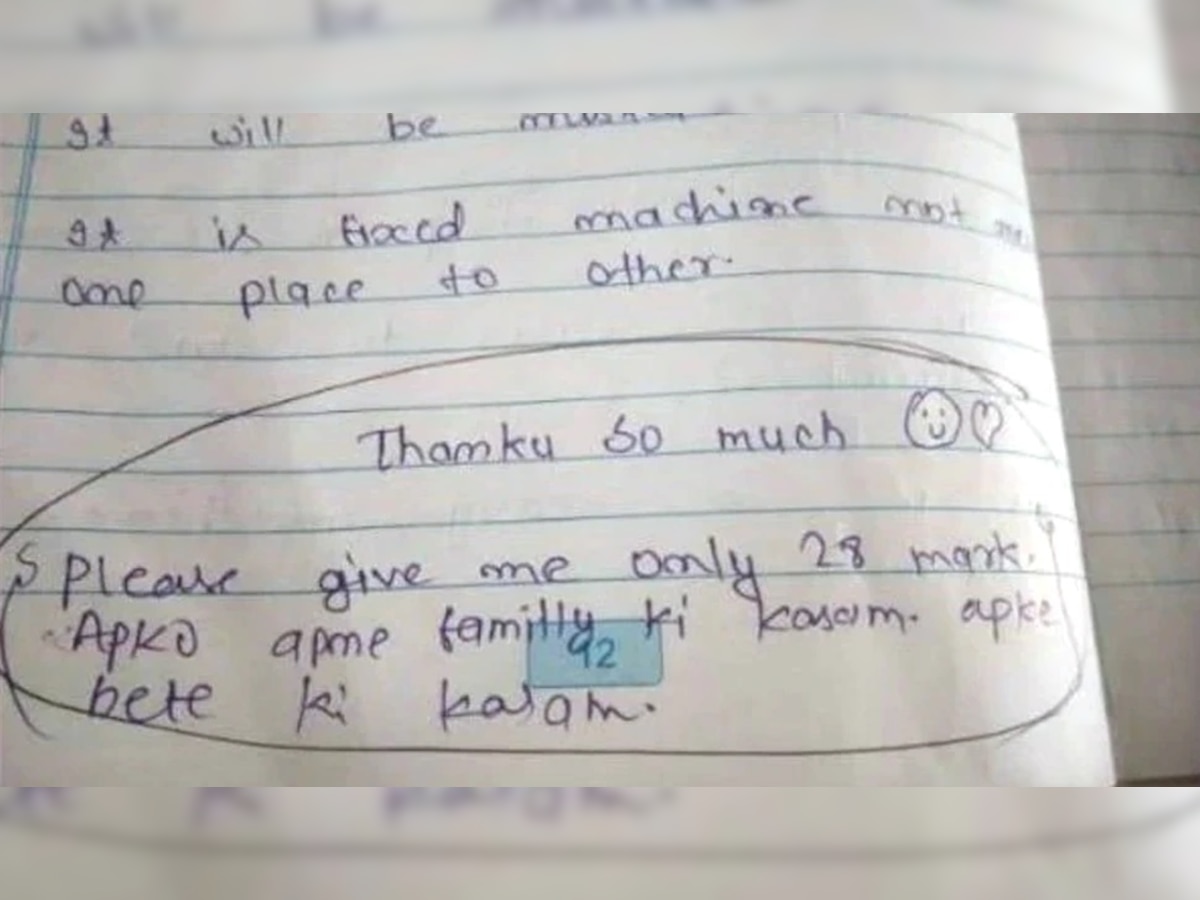 It will be
It is fixed machine not
one place to other.
Thanku so much
Please give me only 28 mark.
Apko apne familly ki kasam. apke
bete ki kasam.
92